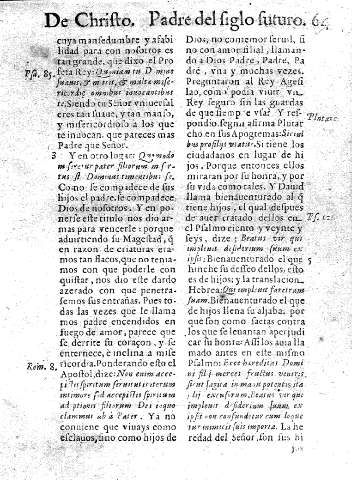 De Christo. Padre del siglo futuro. 64
cuya mansedumbre y afabi
lidad para con nosotros es
tan grande, que dixo el Pro
feta Rey: Quoniam tu Domine
Psa. 85.
suauis, & mitis, & multæ mise
ricordiæ omnibus inuocantibus
te. Siendo tu Señor vniuersal
eres tan suaue, y tan manso,
y misericordioso à los que
te inuocan. que pareces mas
Padre que Señor.
3 Y en otro lugar: Quomodo
miseretur pater filiorum mi
sertus est Dominus timentibus se.
Como se compadece de sus
hijos el padre, se compadece
Dios de nosotros. Y en po
nerse este titulo nos dio ar
mas para vencerle: porque
aduirtiendo su Magestad, q̃
en razon de criaturas era
mos tan flacos, que no tenia
mos con que poderle con
quistar, nos dio este dardo
azerado con que penetra
semos sus entrañas. Pues to
das las vezes que le llama
mos padre encendidos en
fuego de amor, parece que
se derrite su coraçon, y se
enternece, è inclina à mise
ricordia. Ponderando esto el
Rom. 8.
Apostol, dize: Non enim acce
pistis spiritum seruitutis iterum in
timore sed accepistis spiritum
adoptionis filiorum Dei in quo
clamamus abba Pater. Ya no
conuiene que viuays como
esclauos, sino como hijos de
Dios, no con temor seruil, si
no con amor filial, llaman-
do à Dios Padre, Padre, Pa
dre, vna y muchas vezes.
Preguntaron al Rey Agesi
lao, como podia viuir vn
Rey seguro sin las guardas
de que siempre vsaua? Y res
pondio segun afirma Plutar
Plutarc.
cho en sus Apotegmas: Si ciui
bus præsit vt pater filiis. Si tiene los
ciudadanos en lugar de hi
jos. Porque entonces ellos
miraran por su honra, y por
su vida como tales. Y Dauid
llama bienauenturado al q̃
tiene hijos, el qual despues
de auer tratado dellos en
Ps. 126.
el Psalmo ciento y veynte y
seys, dize: Beatus vir qui
impleuit desiderium suum ex
ipsis: Bienauenturado el que
5
hinche su desseo dellos, esto
es de hijos; y la translacion
Hebrea: Qui impleuit faretram
suam. Bienauenturado el que
de hijos llena su aljaba: por
que son como saetas contra
los que se leuantan à perjudi
car su honra: Assi los auia lla
mado antes en este mismo
Psalmo: Ecce hæreditas Domi
ni filij merces fructus ventris,
sicut sagittæ in manu potentis ita
filij excussorum. Beatus vir qui
impleuit desiderium suum ex
ipsis non confundetur cum loque
tur inimicis suis in porta. La he
redad del Señor, son sus hi
jos